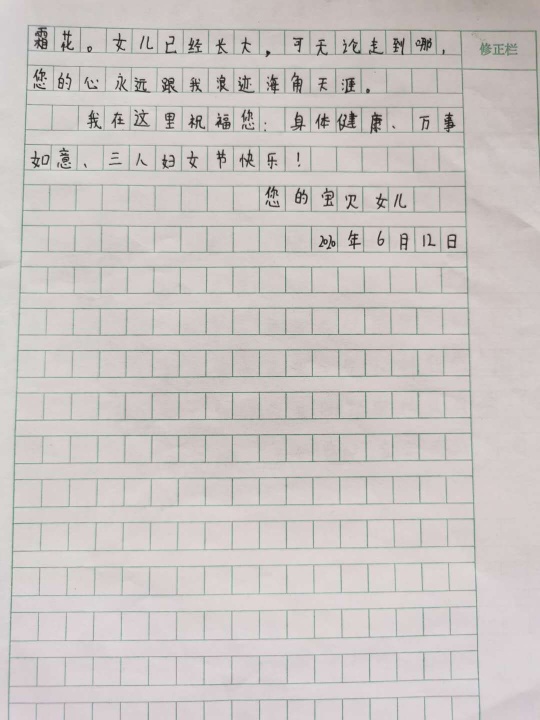 霜花。女儿已经长大，可无论走到哪，
修正栏
您的心永远跟我浪迹海角天涯。
我在这里祝福您：身体健康、万事
如意、三八妇女节快乐！
您的宝贝女儿
2020年6月12日